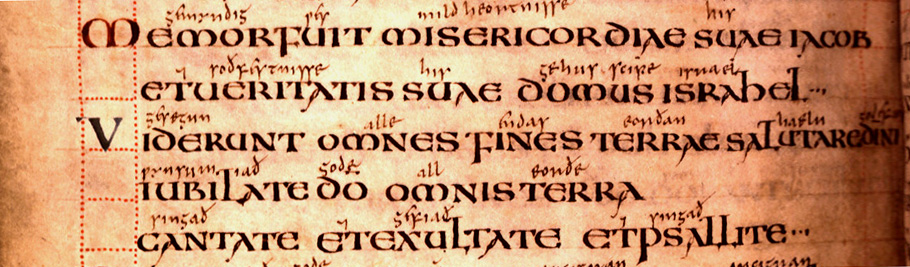 gemyndig wes mildheortnisse his
MEMOR FUIT MISERICORDIAE SUAE IACOB
⁊ soðfestnisse his gehusscipe israel
ET UERITATIS SUAE DOMUS ISRAHEL
gesegun alle endas eorðan haelu
VIDERUNT OMNES FINES TERRAE SALUTARE DI NI
wynsumiað gode all eorðe
IUBILATE DO OMNIS TERRA
singað ⁊ gefiað ⁊ singað
CANTATE ET EXULTATE ET PSALLITE